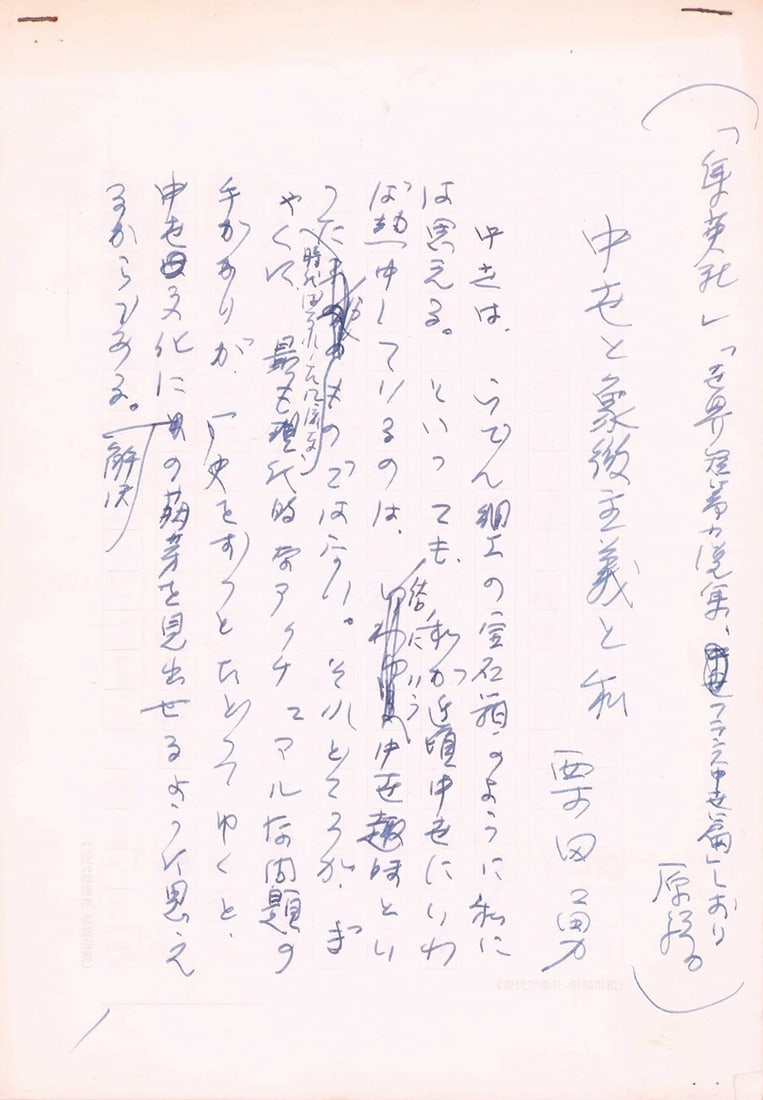 「集英社」「世界短篇文学全集、フランス中世篇」しおり
原稿
中世と象徴主義と私
栗田勇
中世は、らでん細工の宝石箱のように私に
は思える。といっても、私が近頃中世にいわ
ば熱中しているのは、俗にいう中世趣味とい
ったものではない。それどころか、ぎ
やくに、最も現代的なアクチュアルな問題の
手がかりが、歴史をずっとたどってゆくと、
中世文化にの萌芽を見出せるように思え
るからである。
解決